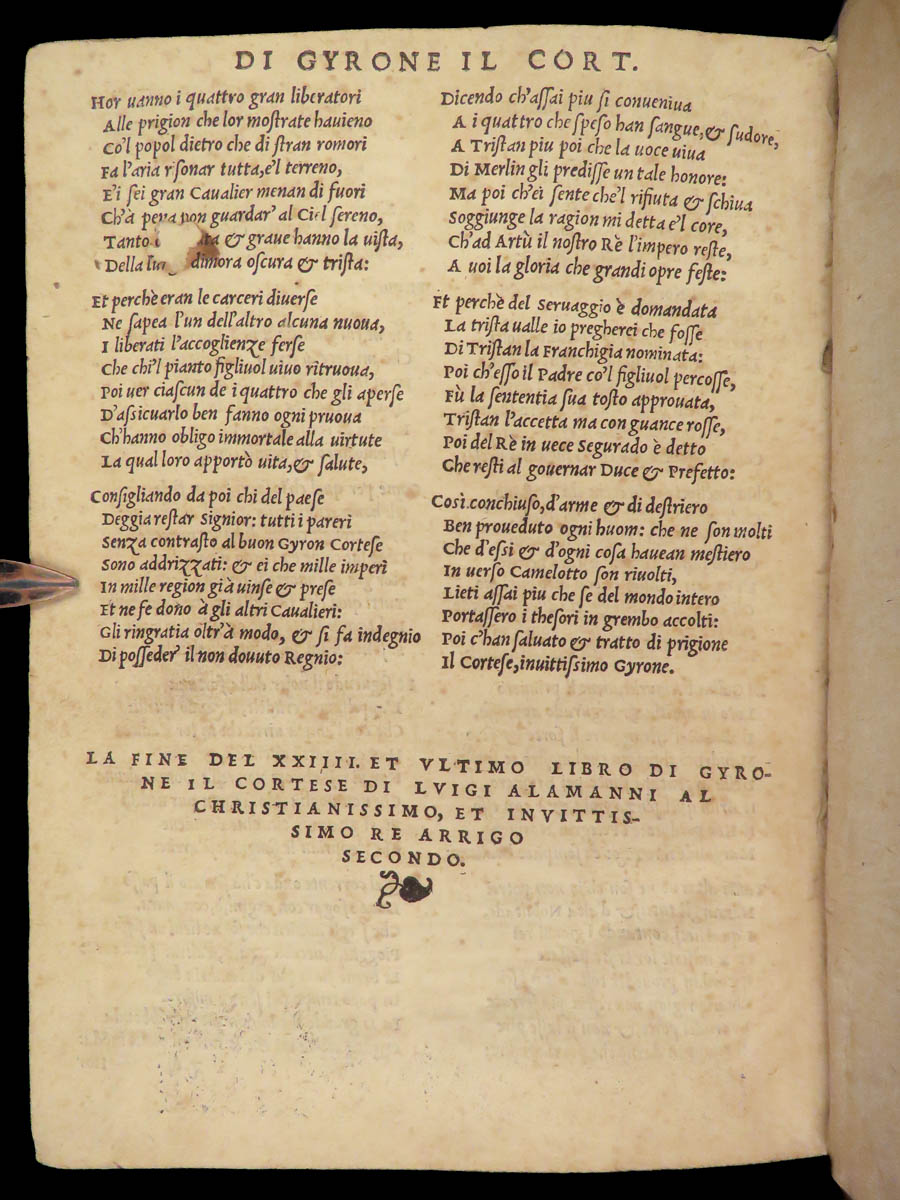 DI GYRONE IL CORT.
Hor uanno i quattro gran liberatori
Alle prigion che lor mostrate hauieno
Co'l popol dietro che di stran romori
Fa l'aria risonar tutta, e'l terreno,
E'i sei gran Caualier menan di fuori
Ch'à pena pon guardar' al Ciel sereno,
Tanto & graue hanno la uista,
Della dimora oscura & trista:
Et perchè eran le carceri diuerse
Ne sapea l'un dell'altro alcuna nuoua,
I liberati l'accoglienze ferse
Che chi'l pianto figliuol uiuo ritruoua,
Poi uer ciascun de i quattro che gli aperse
D'assicuarlo ben fanno ogni pruoua
Ch'hanno obligo immortale alla uirtute
La qual loro apportò uita, & salute,
Consigliando da poi chi del paese
Deggia restar Signior: tutti i pareri
Senza contrasto al buon Gyron Cortese
Sono addrizzati: & ei che mille imperi
In mille region già uinse & prese
Et ne fe dono à gli altri Caualieri:
Gli ringratia oltr'à modo, & si fa indegnio
Di posseder' il non douuto Regnio:
Dicendo ch'assai piu si conueniua
A i quattro che speso han sangue, & sudore,
A Tristan piu poi che la uoce uiua
Di Merlin gli predisse un tale honore:
Ma poi ch'ei sente che'l rifiuta & schiua
Soggiunge la ragion mi detta e'l core,
Ch'ad Artù il nostro Rè l'impero reste,
A uoi la gloria che grandi opre feste:
Et perchè del Seruaggio è domandata
La trista ualle io pregherei che fosse
Di Tristan la Franchigia nominata:
Poi ch'esso il Padre co'l figliuol percosse,
Fù la sententia sua tosto approuata,
Tristan l'accetta ma con guance rosse,
Poi del Rè in uece Segurado è detto
Che resti al gouernar Duce & Prefetto:
Così conchiuso, d'arme & di destriero
Ben proueduto ogni huom: che ne son molti
Che d'essi & d'ogni cosa hauean mestiero
In uerso Camelotto son riuolti,
Lieti assai piu che se del mondo intero
Portassero i thesori in grembo accolti:
Poi c'han saluato & tratto di prigione
Il Cortese, inuittissimo Gyrone.
LA FINE DEL XXIIII. ET VLTIMO LIBRO DI GYRO-
NE IL CORTESE DI LVIGI ALAMANNI AL
CHRISTIANISSIMO, ET INVITTIS-
SIMO RE ARRIGO
SECONDO.